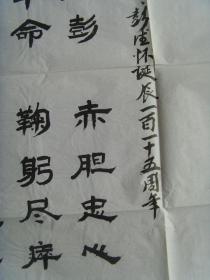 彭德怀诞辰一百一十五周年
彭 赤胆忠心
命 鞠躬尽瘁